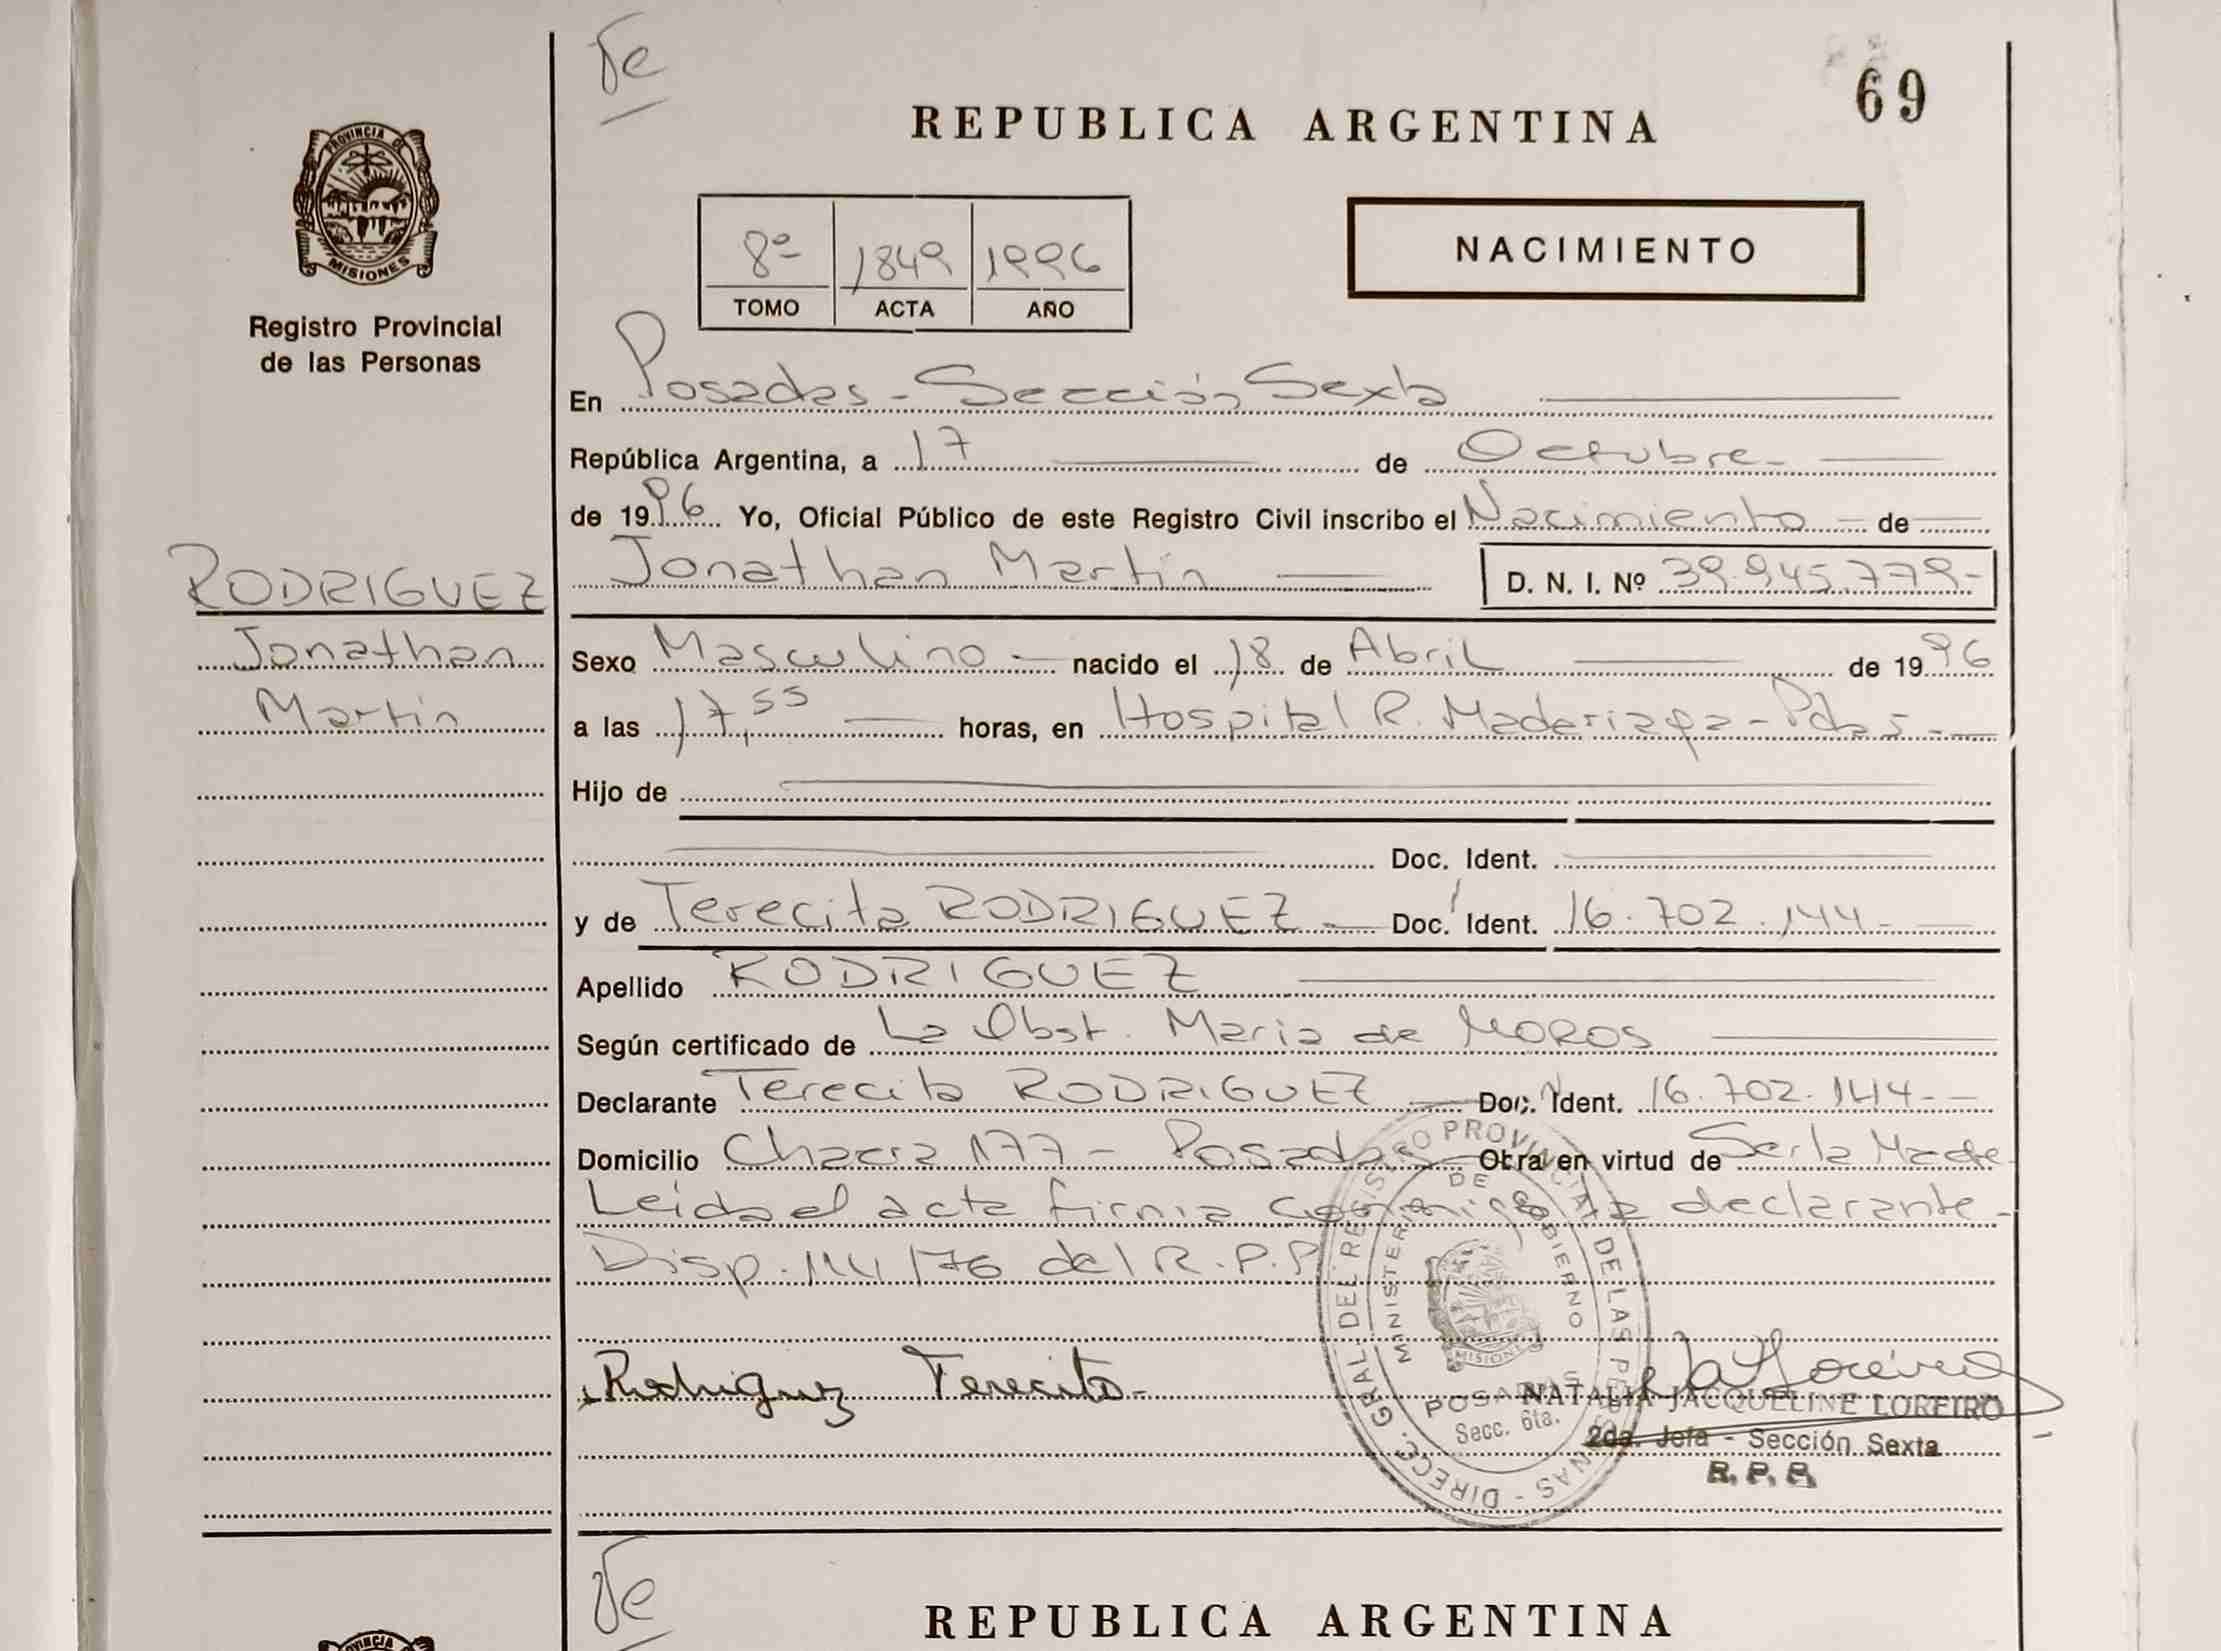 REPUBLICA ARGENTINA
69
PROVINCIA DE
MISIONES
Registro Provincial
de las Personas
8º 1849 1996
TOMO ACTA AÑO
NACIMIENTO
En Posadas - Sección Sexta
República Argentina, a 17 de Octubre
de 1996 Yo, Oficial Público de este Registro Civil inscribo el Nacimiento de
Jonathan Martin D. N. I. Nº 39.945.779-
RODRIGUEZ
Jonathan
Martin
Sexo Masculino nacido el 18 de Abril de 1996
a las 17,55 horas, en Hospital R. Maderiaga - Pdas
Hijo de
Doc. Ident.
y de Terecita RODRIGUEZ Doc. Ident. 16.702.144
Apellido RODRIGUEZ
Según certificado de La Obst. Maria de MOROS
Declarante Terecita RODRIGUEZ Doc. Ident. 16.702.144
Domicilio Chacra 177 - Posadas Obra en virtud de Ser la Madre
Leida el acta firma conmigo la declarante
Disp. 141/76 del R.P.P
DIRECC. GRAL. DEL REGISTRO PROVINCIAL DE LAS PERSONAS
MINISTERIO DE GOBIERNO
MISIONES
POSADAS
Secc. 6ta.
Rodriguez Terecita
NATALIA JACQUELINE LOREIRO
2da. Jefa - Sección Sexta
R. P. P.
REPUBLICA ARGENTINA
PROVINCIA